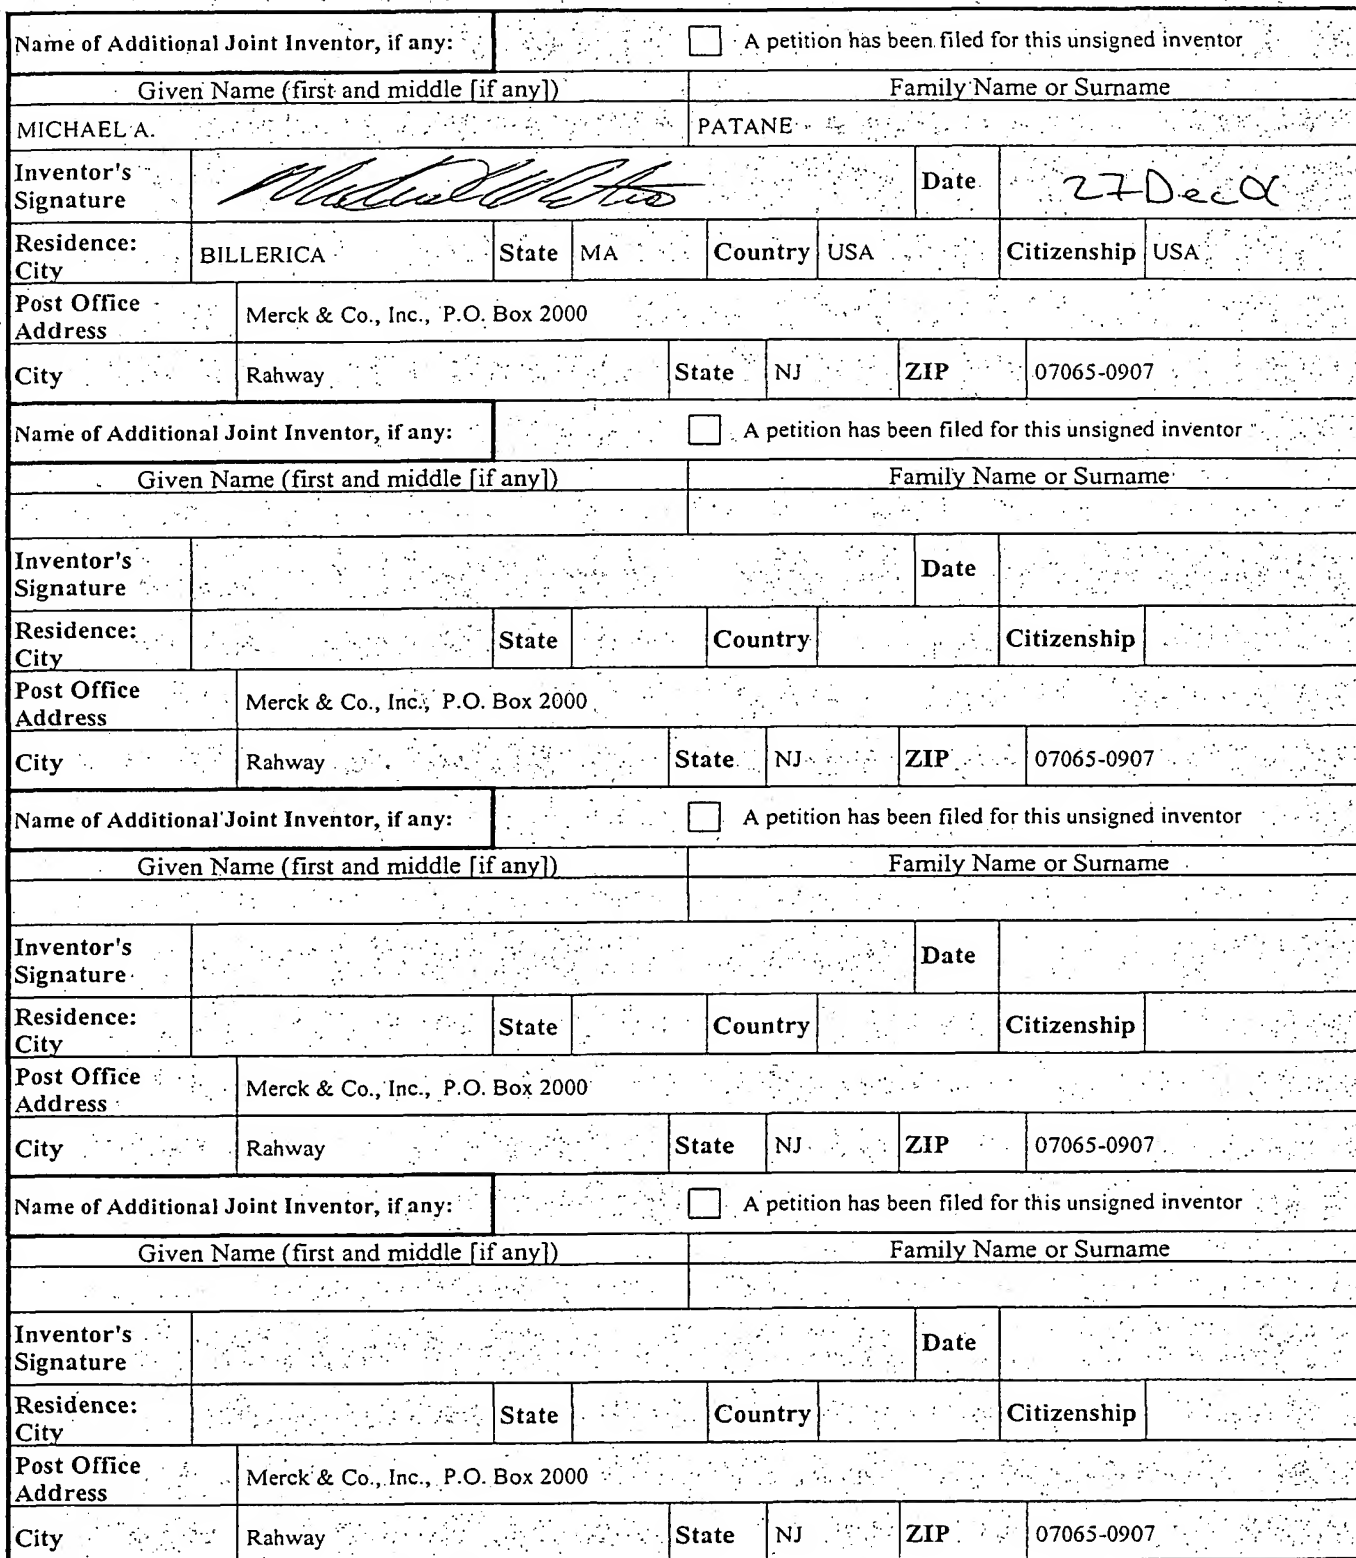 Name of Additional Joint Inventor, if any: A petition has been filed for this unsigned inventor
Given Name (first and middle [if any]) Family Name or Surname
MICHAEL A. PATANE
Inventor's Signature Date 27 Dec
Residence: City BILLERICA State MA Country USA Citizenship USA
Post Office Address Merck & Co., Inc., P.O. Box 2000
City Rahway State NJ ZIP 07065-0907
Name of Additional Joint Inventor, if any: A petition has been filed for this unsigned inventor
Given Name (first and middle [if any]) Family Name or Surname
Inventor's Signature Date
Residence: City State Country Citizenship
Post Office Address Merck & Co., Inc., P.O. Box 2000
City Rahway State NJ ZIP 07065-0907
Name of Additional Joint Inventor, if any: A petition has been filed for this unsigned inventor
Given Name (first and middle [if any]) Family Name or Surname
Inventor's Signature Date
Residence: City State Country Citizenship
Post Office Address Merck & Co., Inc., P.O. Box 2000
City Rahway State NJ ZIP 07065-0907
Name of Additional Joint Inventor, if any: A petition has been filed for this unsigned inventor
Given Name (first and middle [if any]) Family Name or Surname
Inventor's Signature Date
Residence: City State Country Citizenship
Post Office Address Merck & Co., Inc., P.O. Box 2000
City Rahway State NJ ZIP 07065-0907